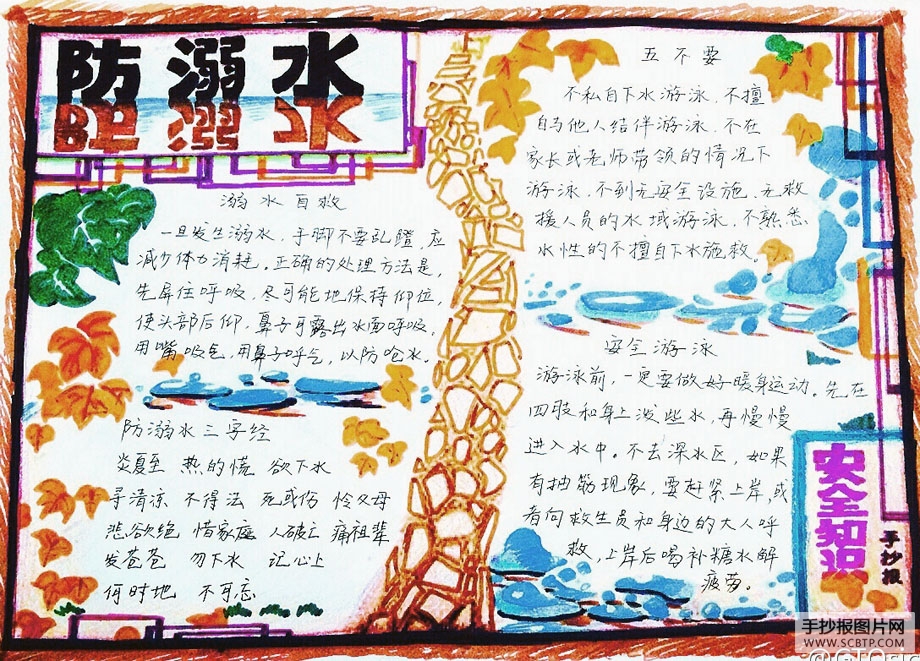 防溺水
溺水自救
一旦发生溺水，手脚不要乱蹬，应
减少体力消耗。正确的处理方法是，
先屏住呼吸，尽可能地保持仰位，
使头部后仰，鼻子可露出水面呼吸，
用嘴吸气，用鼻子呼气，以防呛水。
防溺水三字经
炎夏至 热的慌 欲下水
寻清凉 不得法 死或伤 怜父母
悲欲绝 惜家庭 人破亡 痛祖辈
发苍苍 勿下水 记心上
何时地 不可忘
五不要
不私自下水游泳，不擅
自与他人结伴游泳，不在
家长或老师带领的情况下
游泳，不到无安全设施、无救
援人员的水域游泳，不熟悉
水性的不擅自下水施救。
安全游泳
游泳前，一定要做好暖身运动。先在
四肢和身上泼些水，再慢慢
进入水中。不去深水区，如果
有抽筋现象，要赶紧上岸，或
者向救生员和身边的大人呼
救，上岸后喝补糖水解
疲劳。
安全知识
手抄报
手抄报图片网
WWW.SCBTP.COM